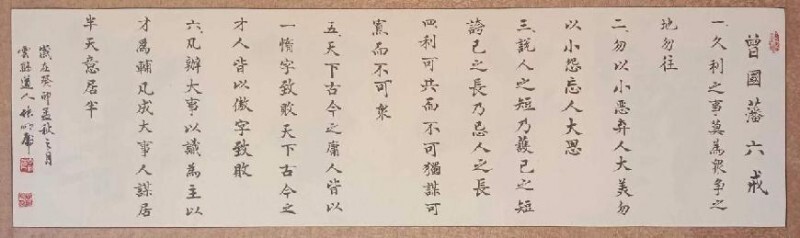 曾國藩六戒
一、久利之事莫為眾爭之
地勿往
二、勿以小惡弃人大美勿
以小怨忘人大恩
三、説人之短乃護己之短
誇己之長乃忌人之長
四、利可共而不可獨謀可
寡而不可衆
五、天下古今之庸人皆以
一惰字致敗天下古今之
才人皆以傲字致敗
六、凡辦大事以識為主以
才為輔凡成大事人謀居
半天意居半
歲在癸卯孟秋之月
雲豁道人